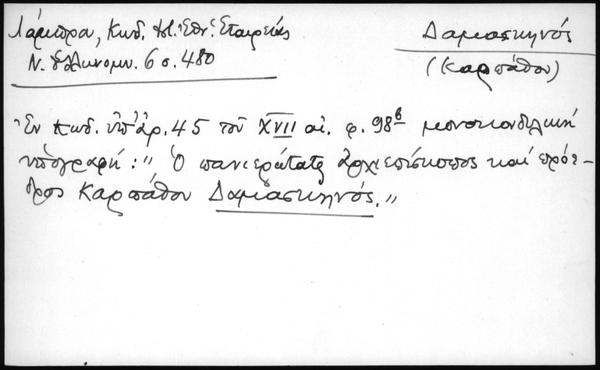 Λάμπρου, Κωδ. Ἱστ. Ἐθν. Ἑταιρείας
Ν. Ἑλληνομν. 6 σ. 480
Δαμασκηνός
(Καρπάθου)
Ἐν κωδ. ὑπ' ἀρ. 45 τοῦ XVII αἰ. φ. 98β μονοκονδυλική
ὑπογραφή: „ Ὁ πανιερώτατς ἀρχιεπίσκοπος καί πρόε-
δρος Καρπάθου Δαμασκηνός.„